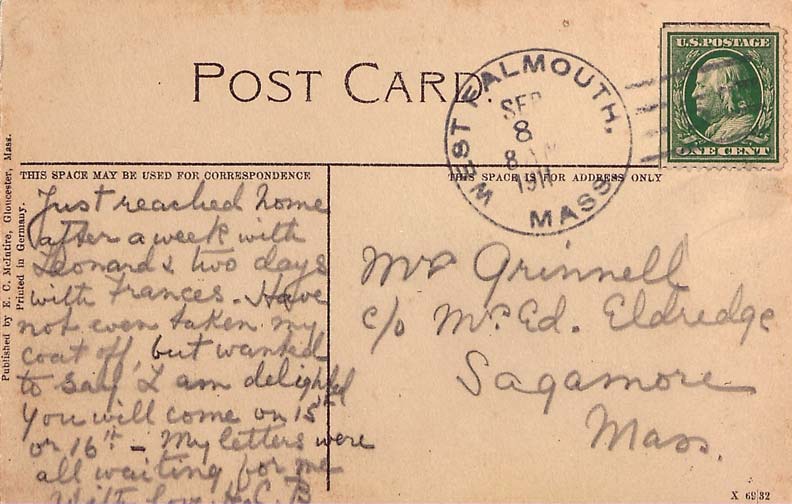 POST CARD.
U.S. POSTAGE
ONE CENT
WEST FALMOUTH,
SEP
8
8 AM
MASS.
THIS SPACE MAY BE USED FOR CORRESPONDENCE
THIS SPACE IS FOR ADDRESS ONLY
Published by E. C. McIntire, Gloucester, Mass.
Printed in Germany.
Just reached home
after a week with
Leonard & two days
with Frances. Have
not even taken my
coat off, but wanted
to say I am delighted
you will come on 15th
or 16th – My letters were
all waiting for me
With love.
Mrs Grinnell
c/o Mr. Ed. Eldredge
Sagamore
Mass.
X 6932